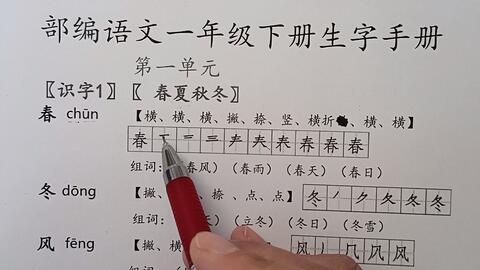 部编语文一年级下册生字手册
第一单元
〖识字1〗〖 春夏秋冬〗
春 chūn 【横、横、横、撇、捺、竖、横折、横、横】
春 一 二 三 声 夫 表 春 春 春
组词：（春风）（春雨）（春天）（春日）
冬 dōng 【撇、捺、点、点】 冬 丿 夂 冬 冬
组词：（立冬）（冬日）（冬雪）
风 fēng 【撇、横 风 丿 几 风 风
组词